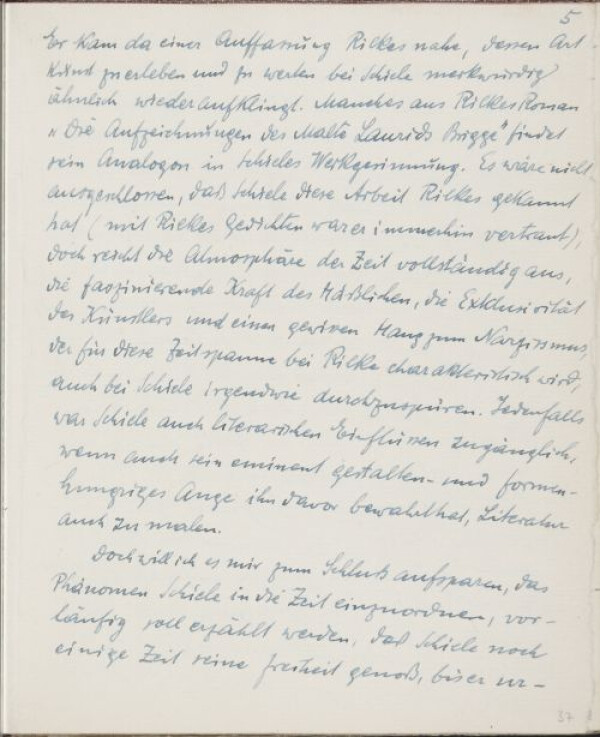 5
Er kam da einer Auffassung Rilkes nahe, dessen Art
Kunst zu erleben und zu werten bei Schiele merkwürdig
ähnlich wiederaufklingt. Manches aus Rilkes Roman
„Die Aufzeichnungen des Malte Laurids Brigge" findet
sein Analogon in Schieles Werkgesinnung. Es wäre nicht
ausgeschlossen, daß Schiele diese Arbeit Rilkes gekannt
hat (mit Rilkes Gedichten war er immerhin vertraut),
doch reicht die Atmosphäre der Zeit vollständig aus,
die faszinierende Kraft des Häßlichen, die Exklusivität
des Künstlers und einen gewissen Hang zum Narzissmus,
der für diese Zeitspanne bei Rilke charakteristisch wird,
auch bei Schiele irgendwie durchzuspüren. Jedenfalls
war Schiele auch literarischen Einflüssen zugänglich,
wenn auch sein eminent gestalten- und formen-
hungriges Auge ihn davor bewahrt hat, Literatur
auch zu malen.
Doch will ich es mir zum Schluß aufsparen, das
Phänomen Schiele in die Zeit einzuordnen, vor-
läufig soll erzählt werden, daß Schiele noch
einige Zeit seine Freiheit genoß, bis er ur-
37